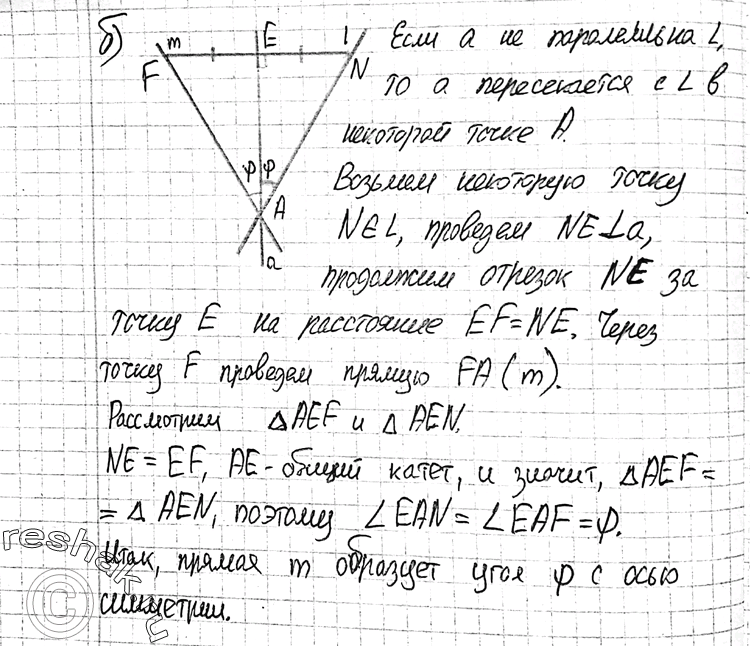 б)
m E l
F N
φ φ
A
a
Если a не паралельна L,
то a пересекается с L в
некоторой точке A.
Возьмем некоторую точку
N∈L, проведем NE⊥a,
продолжим отрезок NE за
точку E на расстояние EF=NE. Через
точку F проведем прямую FA (m).
Рассмотрим △AEF и △AEN.
NE = EF, AE - общий катет, и значит, △AEF =
= △AEN, поэтому ∠EAN = ∠EAF = φ.
Итак, прямая m образует угол φ с осью
симметрии.
reshak.ru
©